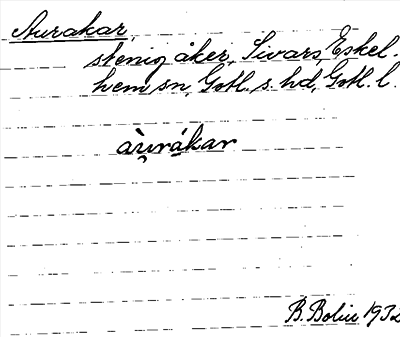 Aurakar,
stenig åker, Sivars, Eskel-
hem sn, Gotl. s. hd, Gotl. l.
àu̯rákar
B. Bolin 1932